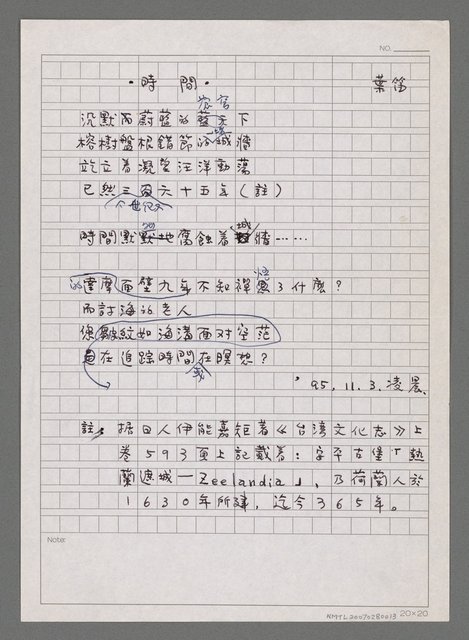 NO.
·時間·
葉笛
沉默而蔚藍的蒼穹下
榕樹盤根錯節的城牆
屹立着凝望汪洋動蕩
已然三百六十五年（註）
時間默默地腐蝕着城牆……
達摩面壁九年不知禪悟了什麼？
而討海的老人
你皺紋如海溝面对空茫
在追踪時間在瞑想？
我
'95.11.3.凌晨
註：据日人伊能嘉矩著《台湾文化志》上
卷593頁上記載着：安平古堡「熱
蘭遮城—Zeelandia」，乃荷蘭人於
1630年所建，迄今365年。
Note:
NMTL20070280013
20×20